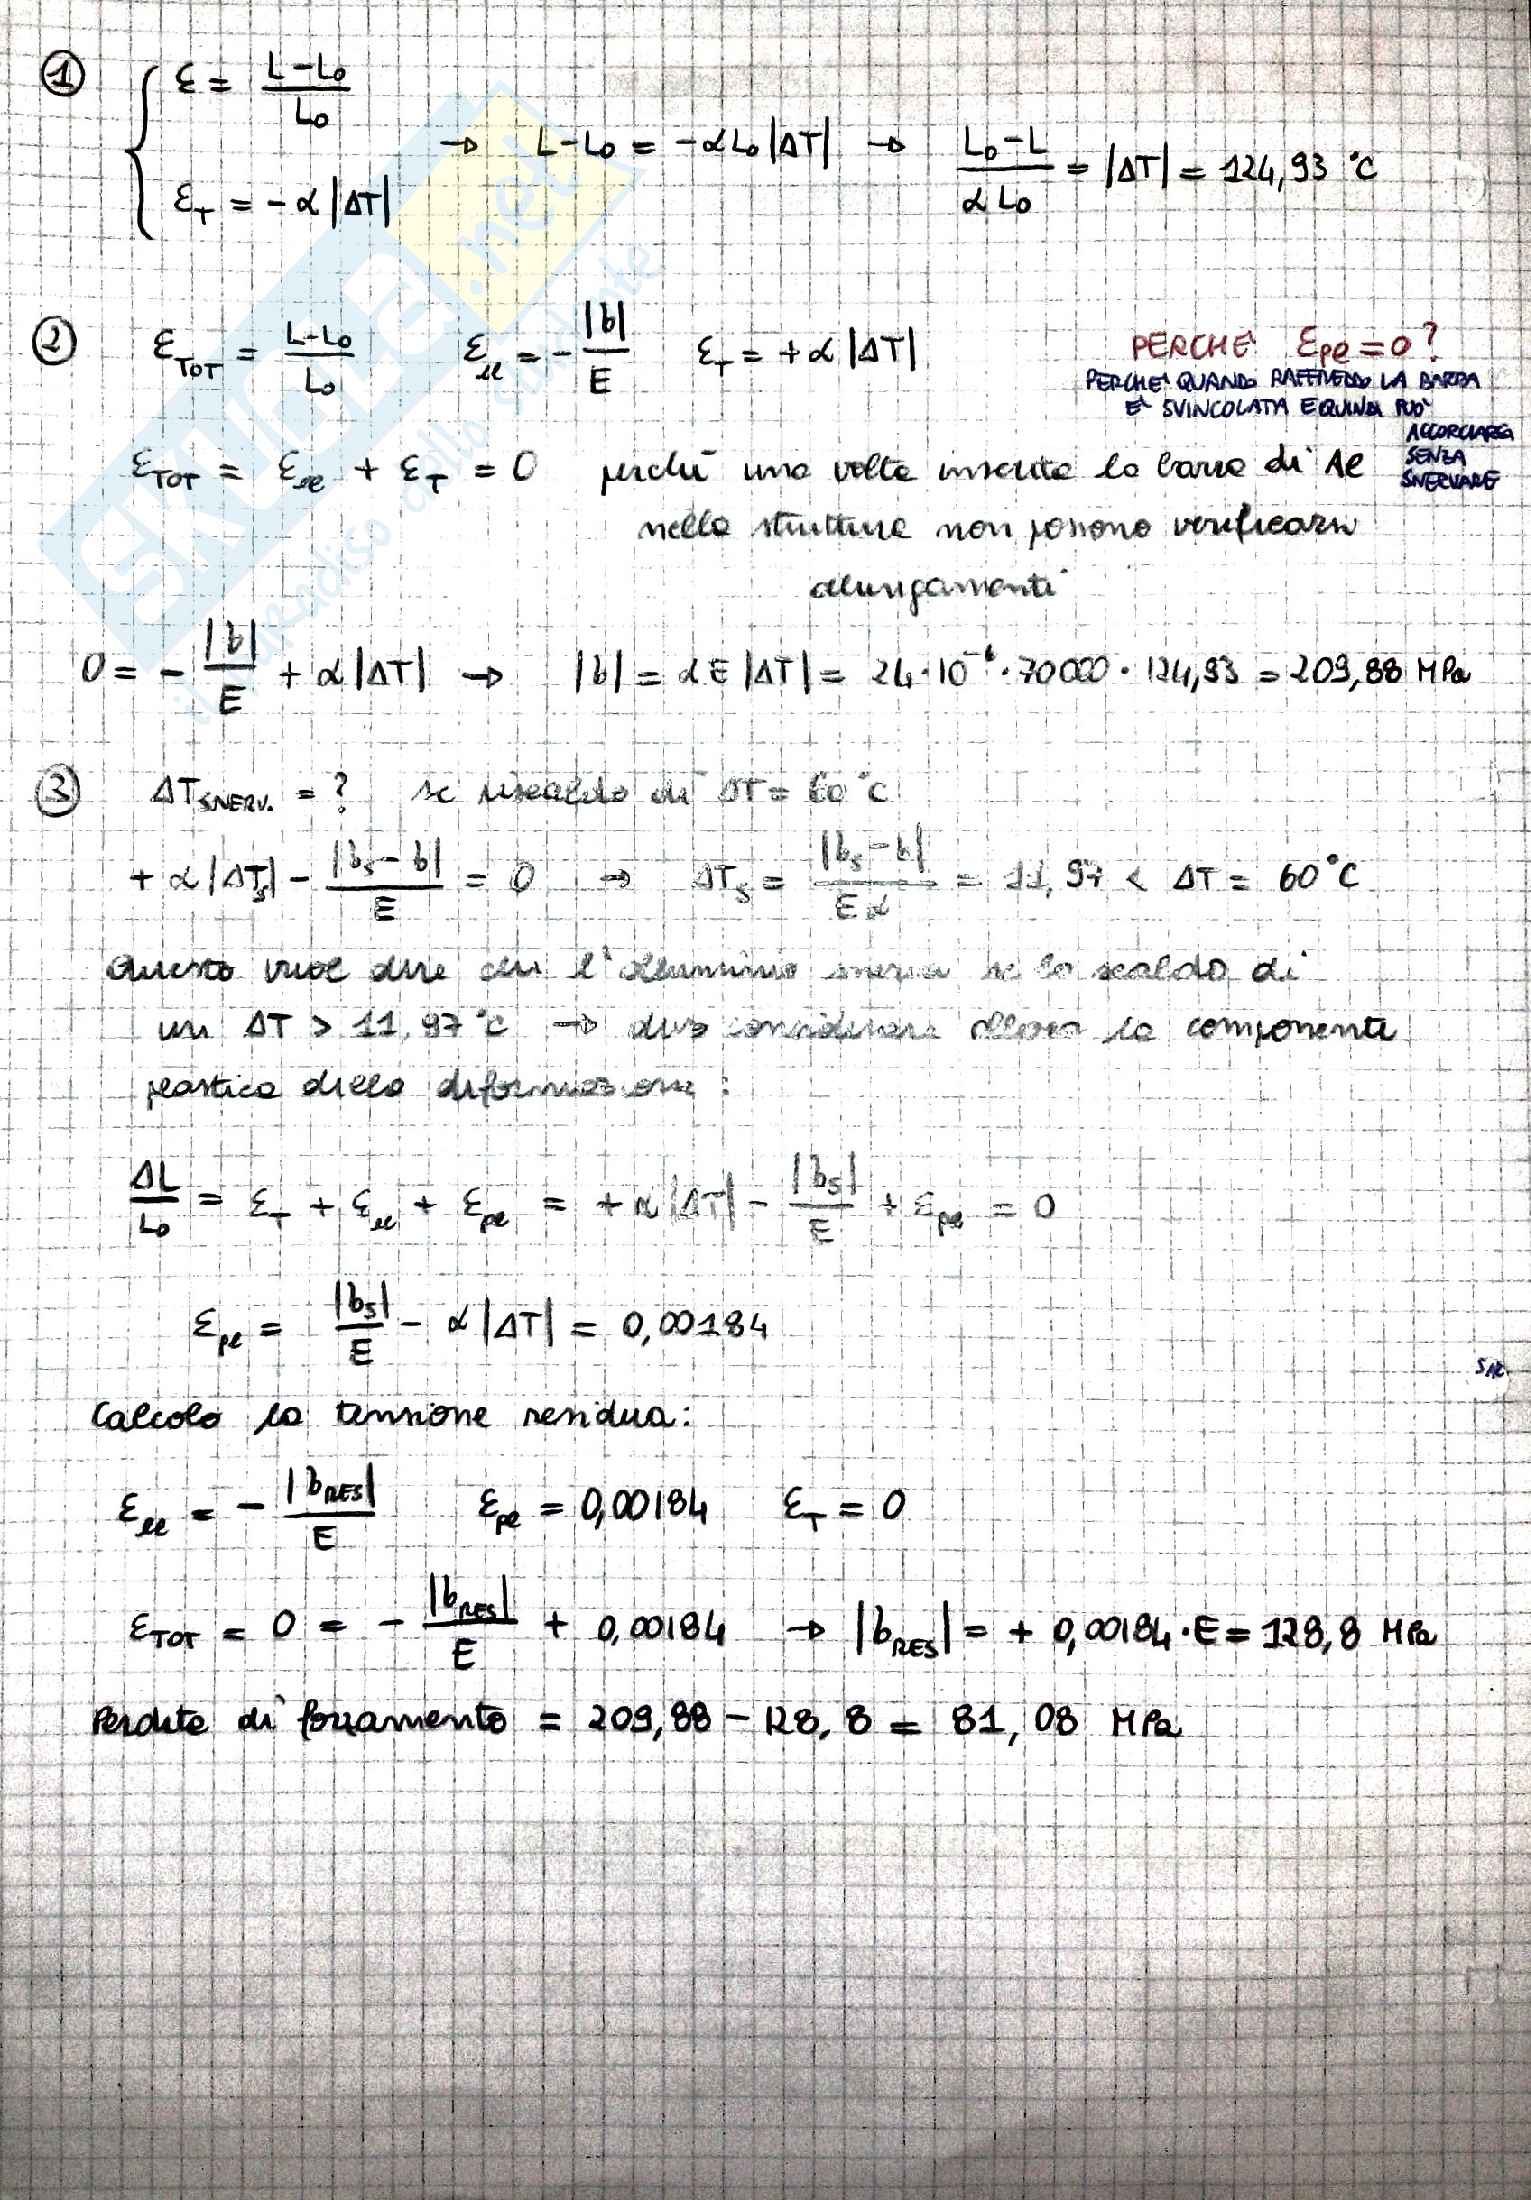 ① { ε = (L-L₀)/L₀
ε_T = -α|ΔT| → L-L₀ = -αL₀|ΔT| → (L₀-L)/(αL₀) = |ΔT| = 124,93 °C
② ε_TOT = (L-L₀)/L₀ ε_el = -|σ|/E ε_T = +α|ΔT|
PERCHE' ε_pl = 0?
PERCHE' QUANDO RAFFREDDO LA BARRA
E' SVINCOLATA E QUINDI PUO'
ACCORCIARSI
SENZA
SNERVARE
ε_TOT = ε_el + ε_T = 0 perché una volta inserita la barra di Al
nella struttura non possono verificarsi
allungamenti
0 = -|σ|/E + α|ΔT| → |σ| = αE|ΔT| = 24·10⁻⁶·70000·124,93 = 209,88 MPa
③ ΔT_SNERV. = ? se riscaldo di ΔT = 60°C
+α|ΔT_s| - |σ_s-σ|/E = 0 → ΔT_s = |σ_s-σ|/(Eα) = 11,97 < ΔT = 60°C
Questo vuol dire che l'alluminio snerva se lo scaldo di
un ΔT > 11,97°C → devo considerare allora la componente
plastica della deformazione:
ΔL/L₀ = ε_T + ε_el + ε_pl = +α|ΔT| - |σ_s|/E + ε_pl = 0
ε_pl = |σ_s|/E - α|ΔT| = 0,00184
Calcolo la tensione residua:
ε_el = -|σ_RES|/E ε_pl = 0,00184 ε_T = 0
ε_TOT = 0 = -|σ_RES|/E + 0,00184 → |σ_RES| = +0,00184·E = 128,8 MPa
Perdita di forzamento = 209,88 - 128,8 = 81,08 MPa
SKUOLA.net